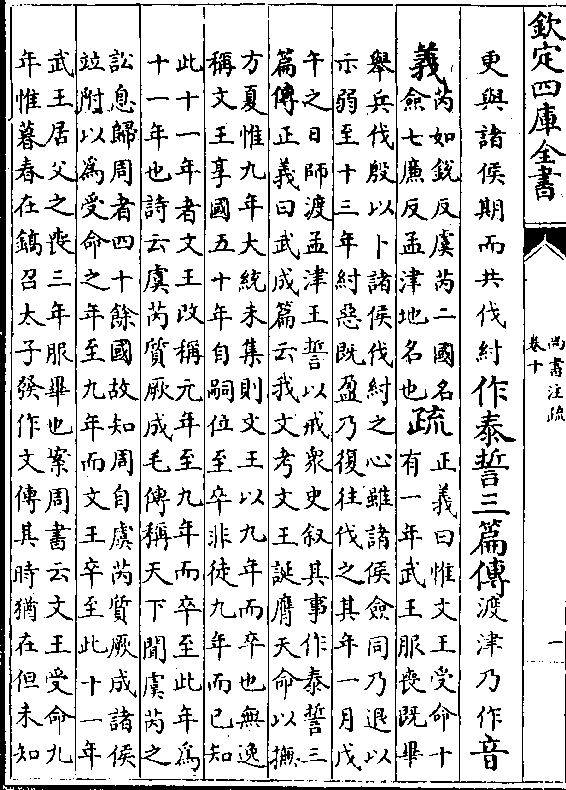 欽定四庫全書
尚書注疏
卷十
一
更與諸侯期而共伐紂作泰誓三篇傳渡津乃作音
義
芮如銳反虞芮二國名
僉七廉反孟津地名也
疏
正義曰惟文王受命十
有一年武王服喪既畢
舉兵伐殷以卜諸侯伐紂之心雖諸侯僉同乃退以
示弱至十三年紂惡既盈乃復往伐之其年一月戊
午之日師渡孟津王誓以戒衆史叙其事作泰誓三
篇傳正義曰武成篇云我文考文王誕膺天命以撫
方夏惟九年大統未集則文王以九年而卒也無逸
稱文王享國五十年自嗣位至卒非徒九年而已知
此十一年者文王改稱元年至九年而卒至此年爲
十一年也詩云虞芮質厥成毛傳稱天下聞虞芮之
訟息歸周者四十餘國故知周自虞芮質厥成諸侯
竝附以爲受命之年至九年而文王卒至此十一年
武王居父之喪三年服畢也案周書云文王受命九
年惟暮春在鎬召太子發作文傳其時猶在但未知